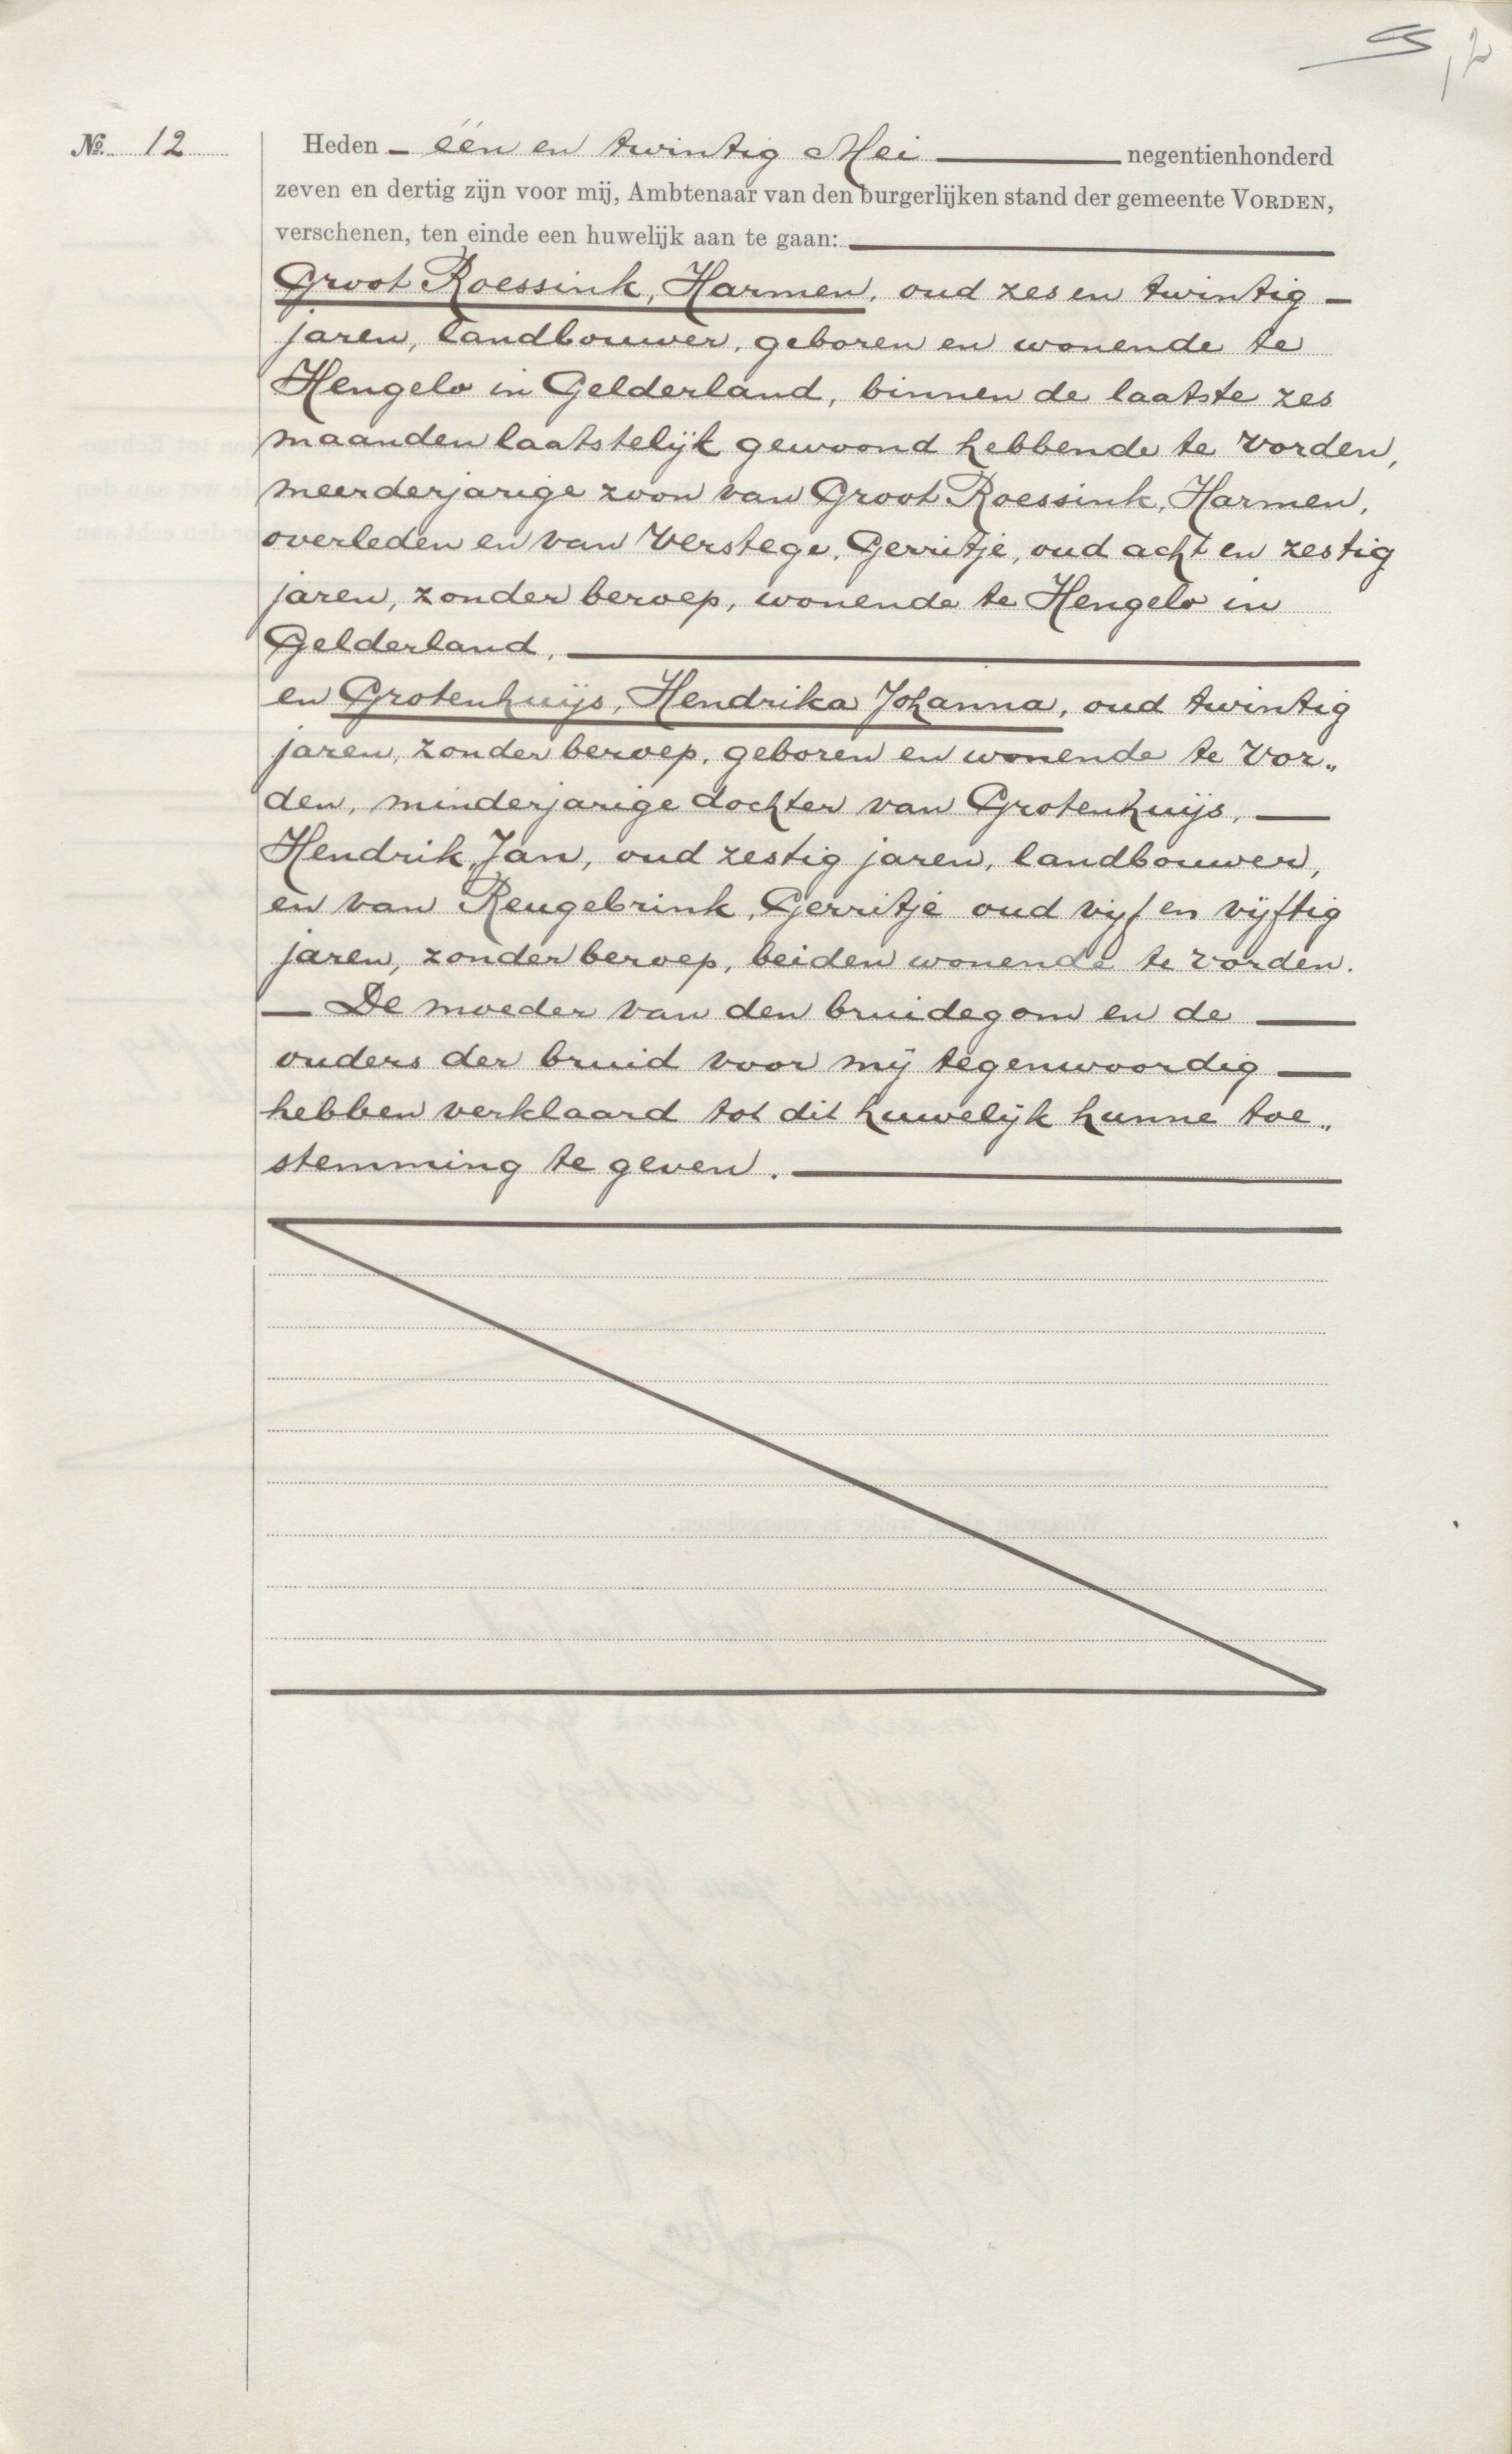 12
№ 12
Heden - één en twintig Mei negentienhonderd
zeven en dertig zijn voor mij, Ambtenaar van den burgerlijken stand der gemeente VORDEN,
verschenen, ten einde een huwelijk aan te gaan:
Groot Roessink, Harmen, oud zes en twintig -
jaren, landbouwer, geboren en wonende te
Hengelo in Gelderland, binnen de laatste zes
maanden laatstelijk gewoond hebbende te Vorden,
meerderjarige zoon van Groot Roessink, Harmen,
overleden en van Verstege, Gerritje, oud acht en zestig
jaren, zonder beroep, wonende te Hengelo in
Gelderland,
en Grotenhuijs, Hendrika Johanna, oud twintig
jaren, zonder beroep, geboren en wonende te Vor„
den, minderjarige dochter van Grotenhuijs, —
Hendrik Jan, oud zestig jaren, landbouwer,
en van Reugebrink, Gerritje oud vijf en vijftig
jaren, zonder beroep, beiden wonende te Vorden.
— De moeder van den bruidegom en de —
ouders der bruid voor mij tegenwoordig —
hebben verklaard tot dit huwelijk hunne toe„
stemming te geven.